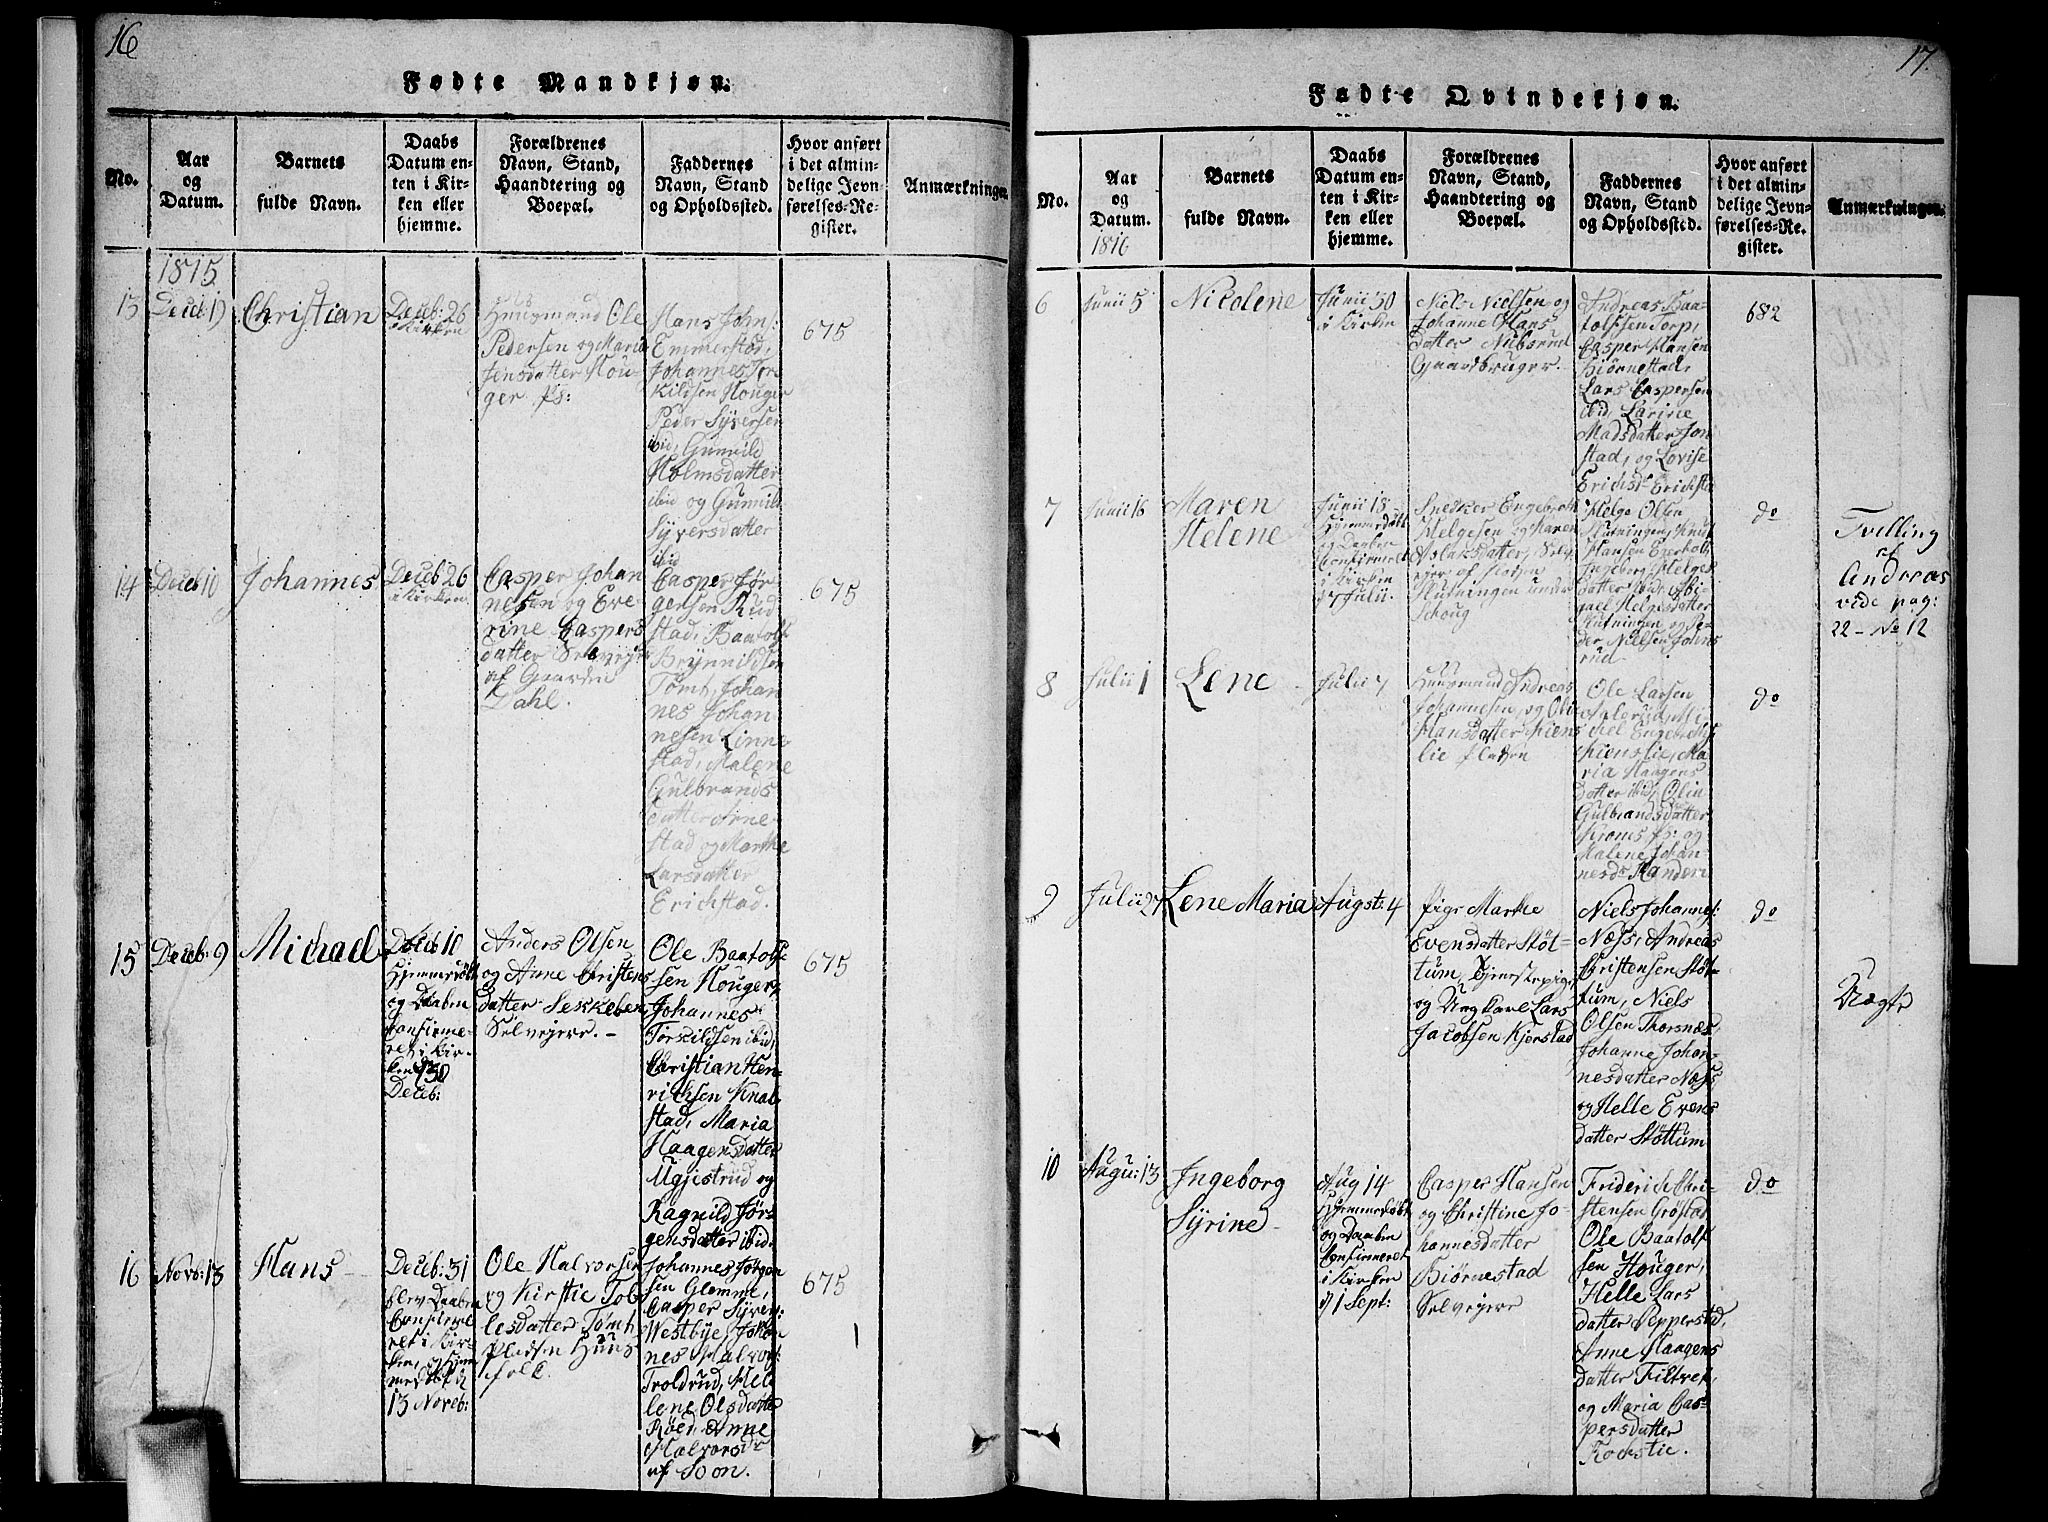 16
Fødte Mandkjøn.
No.
Aar
og
Datum.
Barnets
fulde Navn.
Daabs
Datum en-
ten i Kir-
ken eller
hjemme.
Forældrenes
Navn, Stand,
Haandtering og
Boepæl.
Faddernes
Navn, Stand
og Opholdssted.
Hvor anført
i det almin-
delige Jevn-
førelses-Re-
gister.
Anmærkninger.
1815
13
Decb: 19
Christian
Decb: 26
i Kirken
Huusmand Ole
Pedersen og Maria
Jensdatter Hou-
ger Ps:
Hans Johns:
Emmerstad,
Johannes Tor-
kildsen Houger
Peder Syversen
ibid, Gunnild
Holmsdatter
ibid og Gunnild
Syversdatter
ibid
675
14
Decb 10
Johannes
Decb 26
i Kirken
Casper Johan
nesen og Eve-
rine Caspers
datter Selveyer
af Gaarden
Dahl.
Casper Jør-
gensen Rud
stad, Baatolf
Brynnildsen
Tømt, Johan
nes Johan-
nesen Linne-
stad, Malene
Gulbrands
datter Arne-
stad og Marthe
Larsdatter
Erichstad.
675
15
Decb: 9
Michael
Decb 10
Hjemmedøbt
og Daaben
confirme-
ret i Kir-
ken d 30
Decb:
Anders Olsen
og Anne Christens
datter Sekkeben
Selvejere. -
Ole Baatolf-
sen Houger,
Johannes
Torkildsen ibid,
Christian Hen-
richsen Knal-
stad, Maria
Haagensdatter
Ugjestrud og
Ragnild Jør-
gensdatter ibid.
675
16
Novb: 13
Hans
Decb: 31
blev Daaben
Confirme
ret i Kir-
ken, og Hjem
medøbt d
13 Noveb:
Ole Halvorsen
og Kirstie Tob
lesdatter Tømt
Pladsen Huus
folk.
Johannes Jörgen
sen Glemme,
Casper Syvers:
Westbye, Johan
nes Halvors:
Troldrud, Hel
lene Olsdatter
Røed, Anne
Halvorsdr
af Soon.
675
17.
Fødte Qvindekjøn.
No.
Aar
og
Datum.
1816
Barnets
fulde Navn.
Daabs
Datum en-
ten i Kir-
ken eller
hjemme.
Forældrenes
Navn, Stand,
Haandtering og
Boepæl.
Faddernes
Navn, Stand
og Opholdssted.
Hvor anført
i det almin-
delige Jevn-
førelses-Re-
gister.
Anmærkninger.
6
Junii 5
Nicolene
Junii 30
i Kirken
Niels Nielsen og
Johanne Hans
datter Nubsrud
Gaardbruger.
Andreas Baa-
tolfsen Torp,
Casper Hansen
Biørnestad,
Lars Caspersen
ibid, Larine
Madsdatter Jon
stad, og Lovise
Erichsdr Erichstad
682
7
Junii 16
Maren
Helene
Junii 18
Hjemmedøbt
og Daaben
Confirmeret
i Kirken
d 7 Julii.
Snedker Engebreth
Helgesen og Maren
Aslaksdatter, Selv
ejer af Pladsen
Hutningen under
Schoug
Helge Olsen
Hutningen, Knut
Hansen Everholt,
Ingeborg Helges
datter ibid, Abi-
gael Helgesdatter
Hutningen og Pe-
der Nielsen Johns
rud
do
Tvilling
af
Andreas
vide pag:
22 - No 12
8
Julii 1
Lene
Julii 7
Huusmand Andreas
Johannesen, og Olia
Hansdatter Kiens
lie Pladsen
Ole Larsen
Kienslie, Ma
ria Haagens
datter ibid, Olia
Gulbrandsdatter
Malene Johan-
nesdr Randeri
do
9
Julii 27
Lene Maria
Augst: 4
Pige Marthe
Evensdatter Støt-
tum, tjenestepige
og Ungkarl Lars
Jacobsen Kjerstad
Niels Johannes:
Næss, Andreas
Christensen Støt-
tum, Niels
Olsen Thorsnæs,
Johanne Johan-
nesdatter Næss,
og Helle Evens
datter Støttum
do
Uægte
10
Augu: 13
Ingeborg
Syrine
Aug 14
Hjemmedøbt
og Daaben
Confirmeret
i Kirken
d 1 Sept:
Casper Hansen
og Christine Jo-
hannesdatter
Biørnestad
Selvejere
Friderich Chri-
stensen Grøstad
Ole Baatolf
sen Houger,
Helle Lars
datter Pepperstad,
Anne Haagens
datter Filtvet,
og Maria Cas-
persdatter
Rockstie.
do